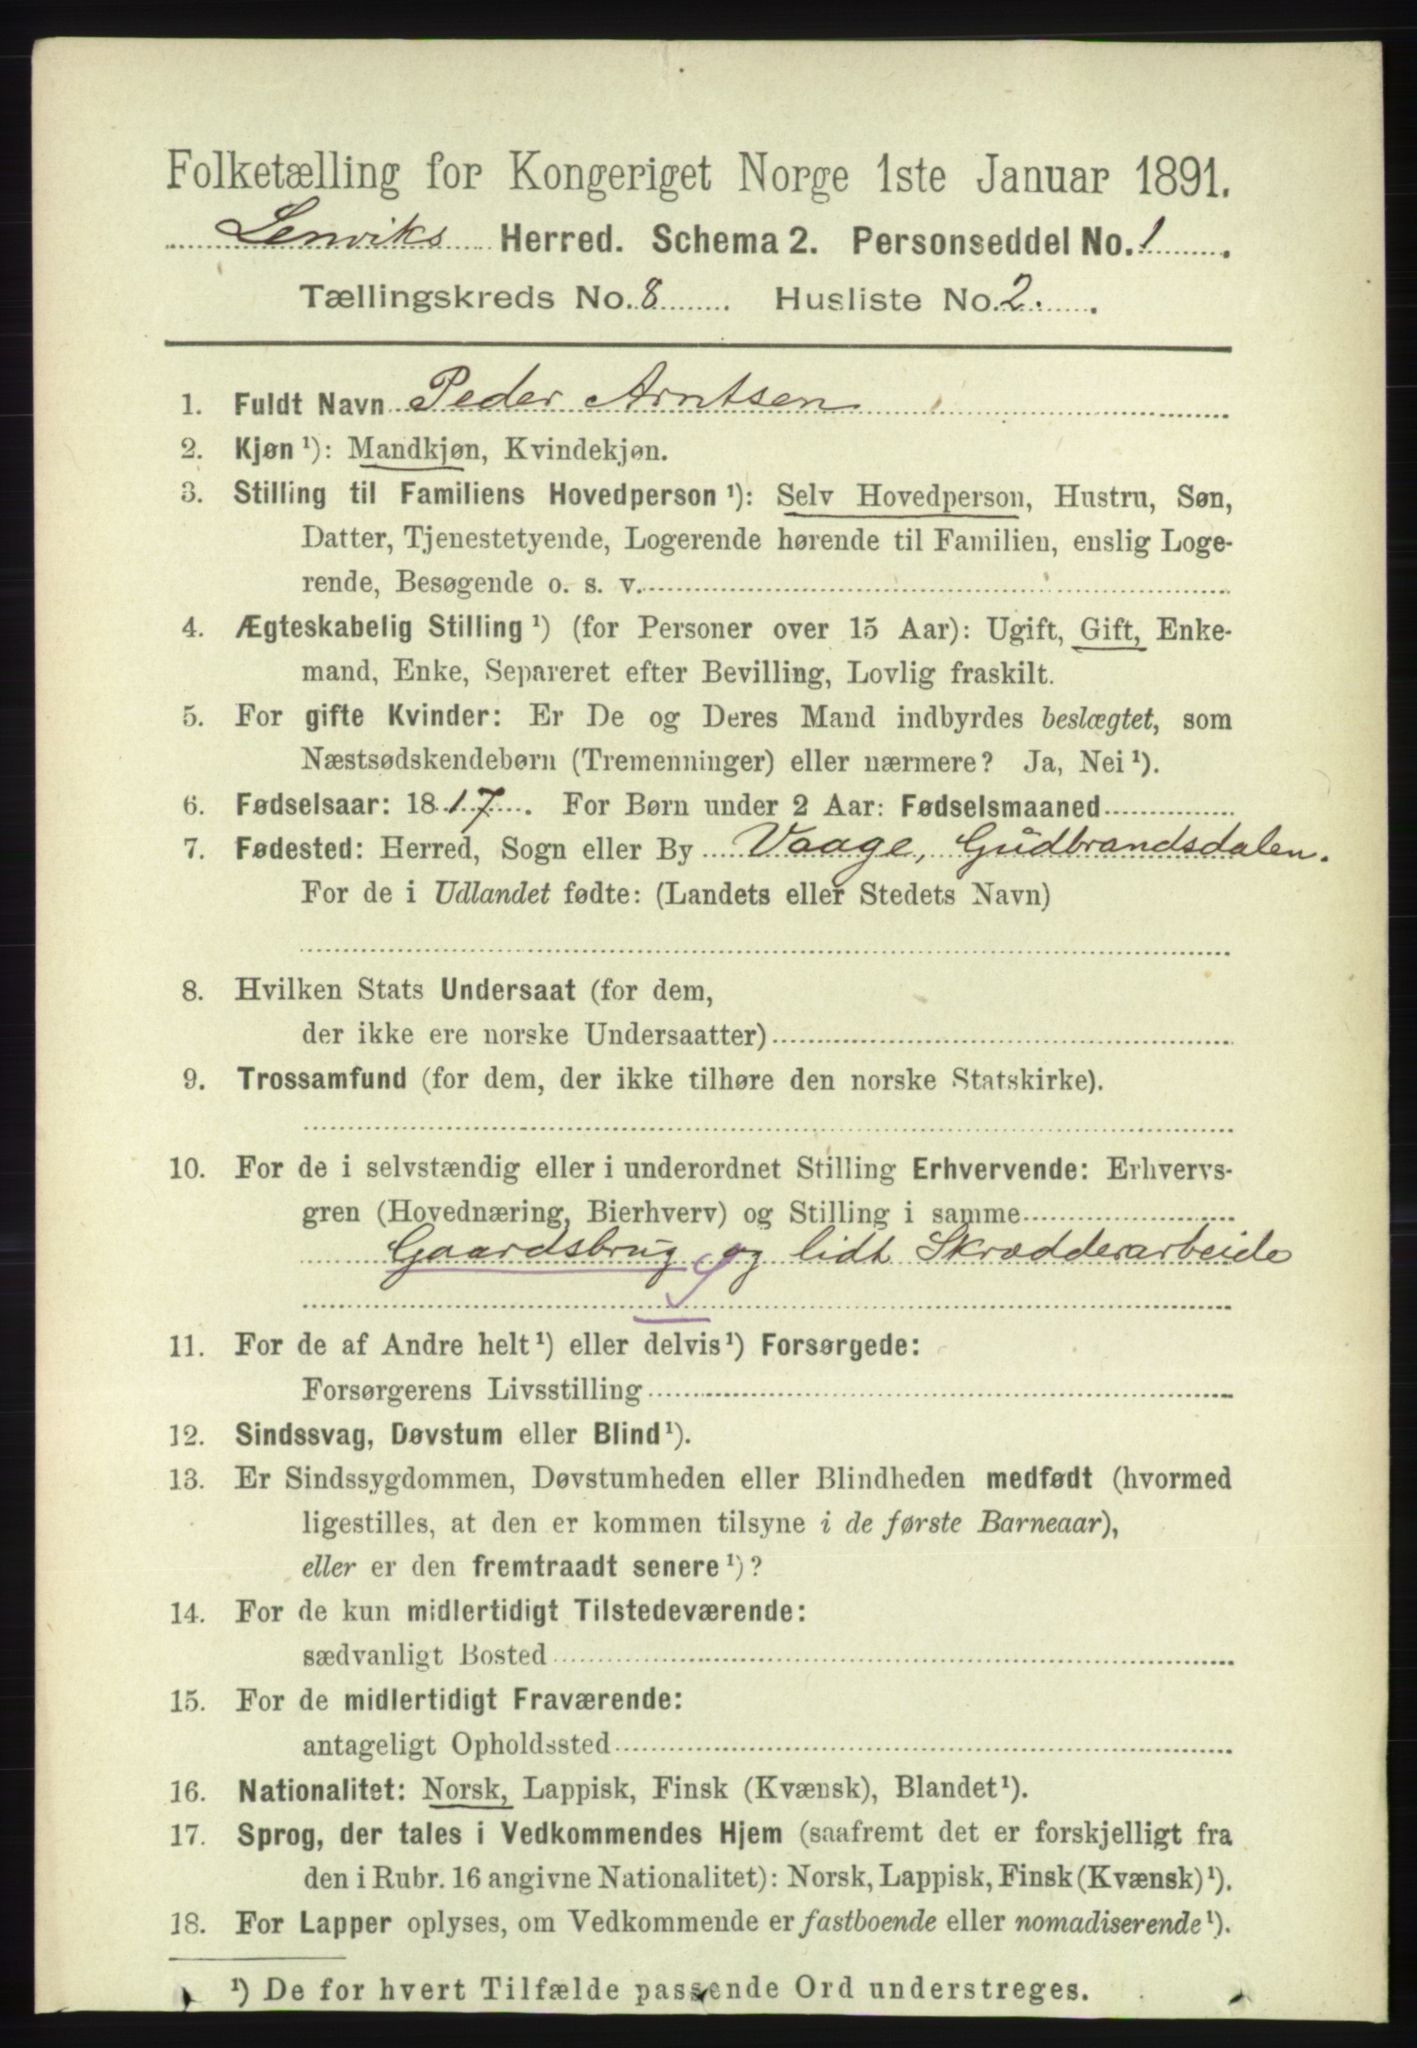 Folketælling for Kongeriget Norge 1ste Januar 1891.
Lenviks Herred. Schema 2. Personseddel No. 1.
Tællingskreds No. 8. Husliste No. 2.
1. Fuldt Navn Peder Arntsen
2. Kjøn ¹): Mandkjøn, Kvindekjøn.
3. Stilling til Familiens Hovedperson ¹): Selv Hovedperson, Hustru, Søn,
Datter, Tjenestetyende, Logerende hørende til Familien, enslig Loge-
rende, Besøgende o. s. v.
4. Ægteskabelig Stilling ¹) (for Personer over 15 Aar): Ugift, Gift, Enke-
mand, Enke, Separeret efter Bevilling, Lovlig fraskilt.
5. For gifte Kvinder: Er De og Deres Mand indbyrdes beslægtet, som
Næstsødskendebørn (Tremenninger) eller nærmere? Ja, Nei ¹).
6. Fødselsaar: 1817. For Børn under 2 Aar: Fødselsmaaned
7. Fødested: Herred, Sogn eller By Vaage, Gudbrandsdalen.
For de i Udlandet fødte: (Landets eller Stedets Navn)
8. Hvilken Stats Undersaat (for dem,
der ikke ere norske Undersaatter)
9. Trossamfund (for dem, der ikke tilhøre den norske Statskirke).
10. For de i selvstændig eller i underordnet Stilling Erhvervende: Erhvervs-
gren (Hovednæring, Bierhverv) og Stilling i samme
Gaardsbrug og lidt Skrædderarbeide
11. For de af Andre helt ¹) eller delvis ¹) Forsørgede:
Forsørgerens Livsstilling
12. Sindssvag, Døvstum eller Blind ¹).
13. Er Sindssygdommen, Døvstumheden eller Blindheden medfødt (hvormed
ligestilles, at den er kommen tilsyne i de første Barneaar),
eller er den fremtraadt senere ¹)?
14. For de kun midlertidigt Tilstedeværende:
sædvanligt Bosted
15. For de midlertidigt Fraværende:
antageligt Opholdssted
16. Nationalitet: Norsk, Lappisk, Finsk (Kvænsk), Blandet ¹).
17. Sprog, der tales i Vedkommendes Hjem (saafremt det er forskjelligt fra
den i Rubr. 16 angivne Nationalitet): Norsk, Lappisk, Finsk (Kvænsk) ¹).
18. For Lapper oplyses, om Vedkommende er fastboende eller nomadiserende ¹).
¹) De for hvert Tilfælde passende Ord understreges.